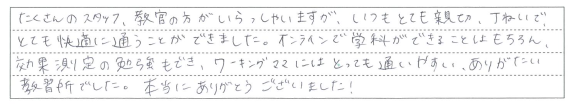 たくさんのスタッフ、教官の方がいらっしゃいますが、いつもとても親切、丁ねいで、
とても快適に通うことができました。オンラインで学科ができることはもちろん、
効果測定の勉強もでき、ワーキングママにはとっても通いやすい、ありがたい
教習所でした。本当にありがとうございました!